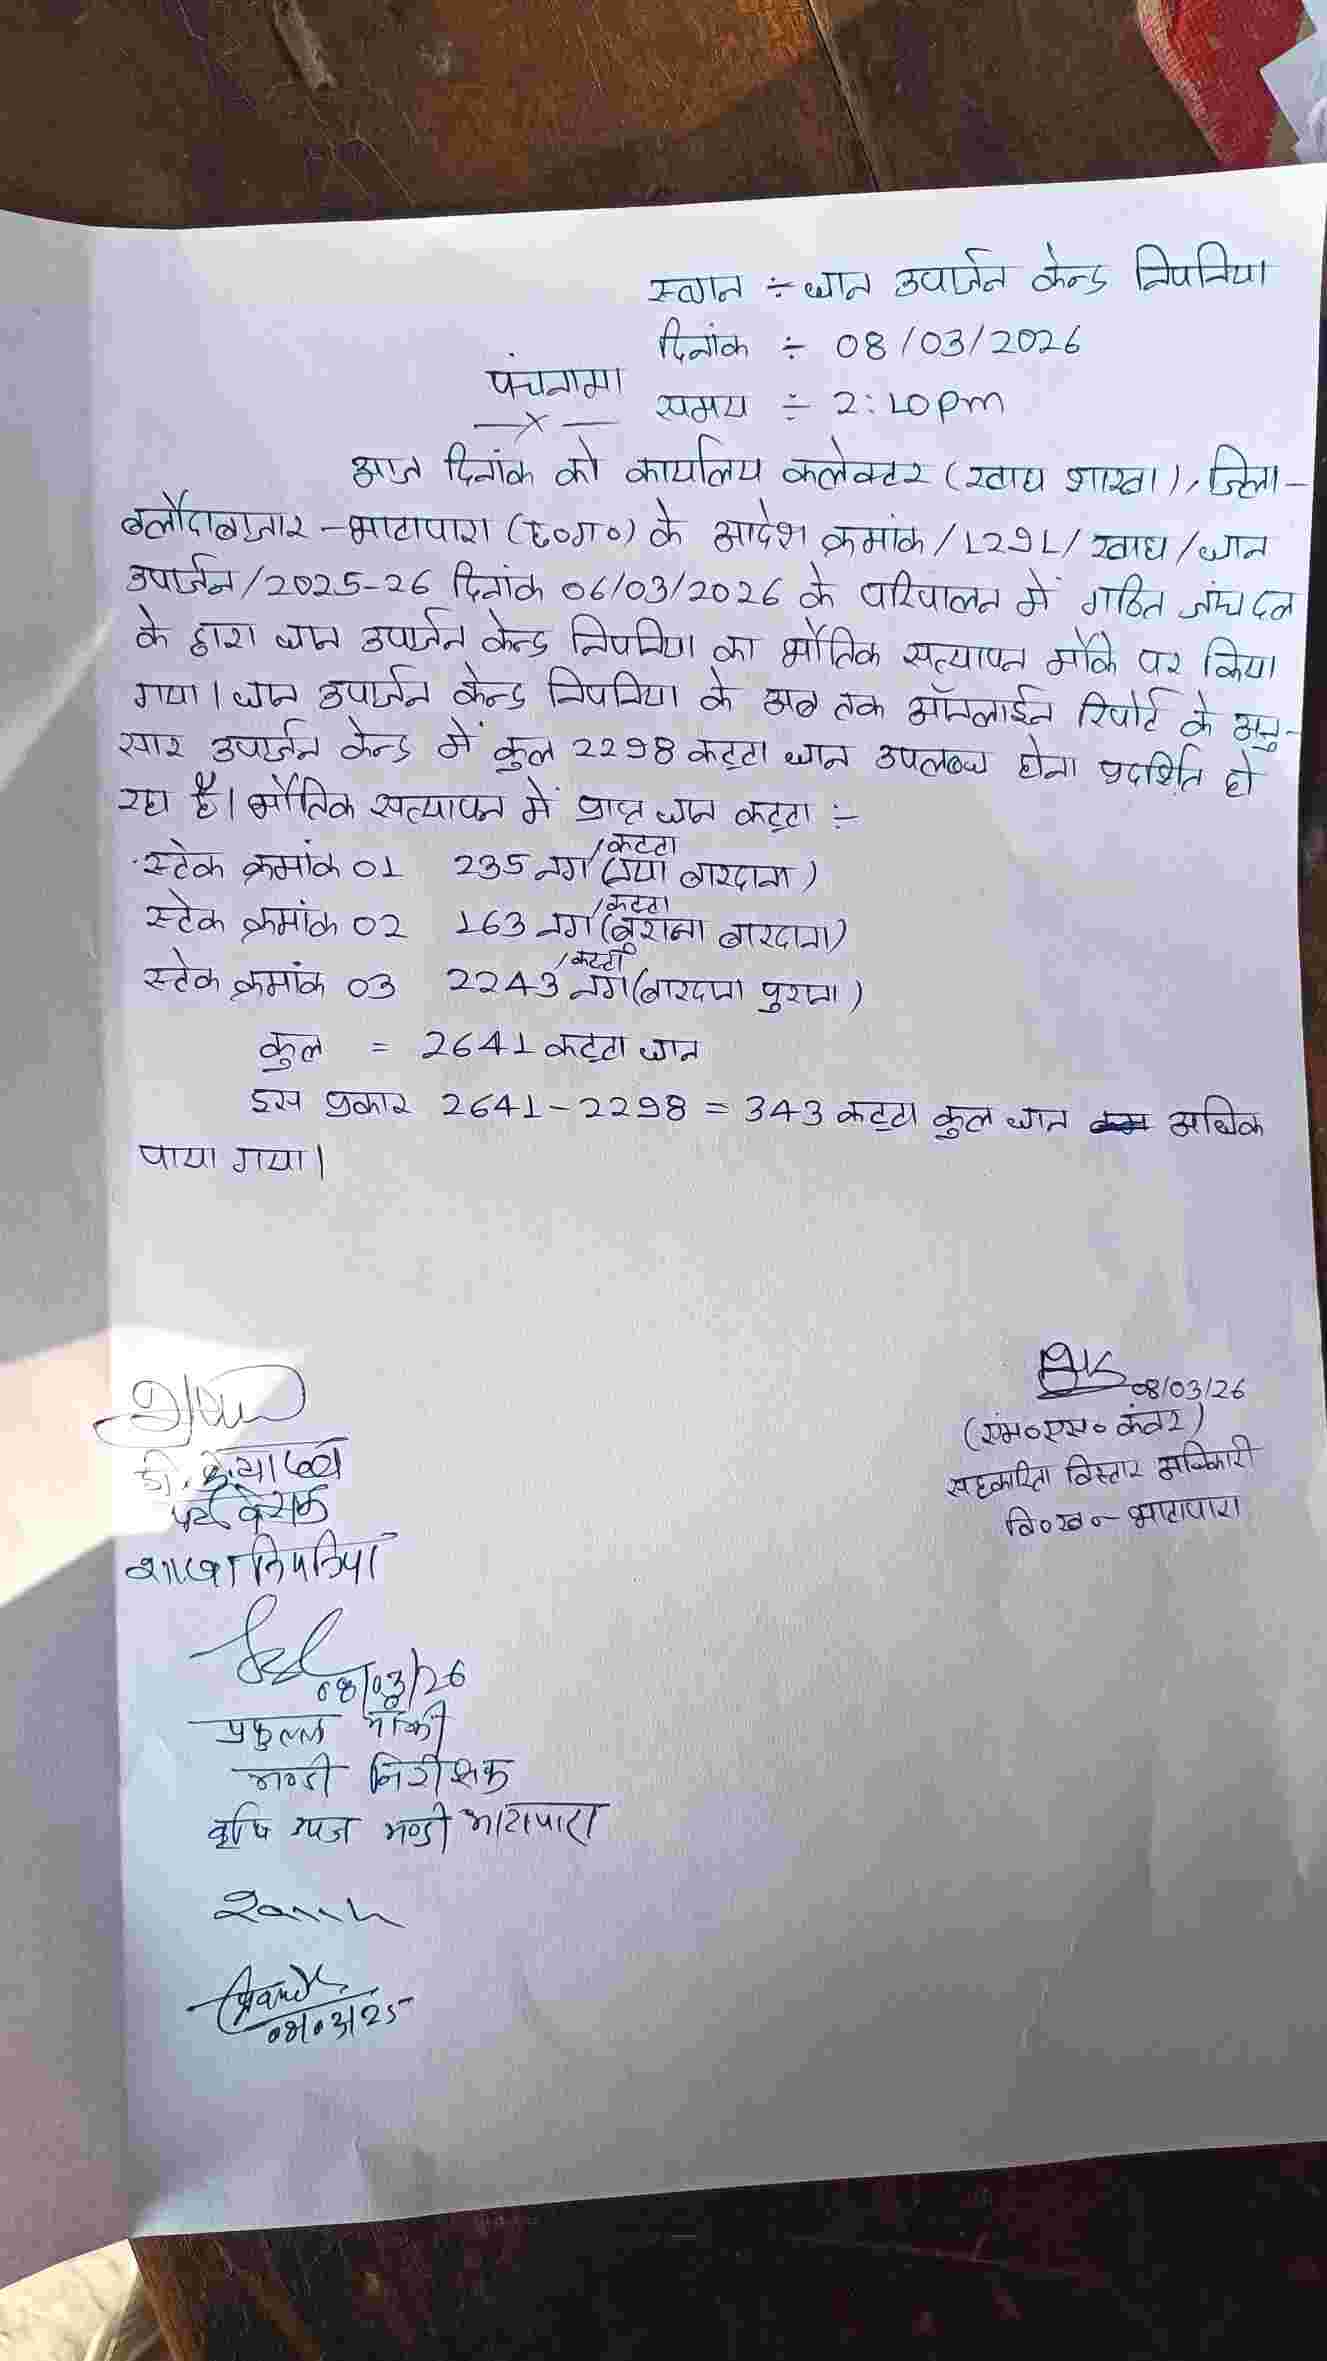 स्थान ÷ धान उपार्जन केन्द्र निपनिया
दिनांक ÷ 08/03/2026
पंचनामा
समय ÷ 2:10pm
आज दिनांक को कार्यालय कलेक्टर (खाद्य शाखा), जिला-
बलौदाबाजार-भाटापारा (छ०ग०) के आदेश क्रमांक/1291/खाद्य/धान
उपार्जन/2025-26 दिनांक 06/03/2026 के परिपालन में गठित जांच दल
के द्वारा धान उपार्जन केन्द्र निपनिया का भौतिक सत्यापन मौके पर किया
गया। धान उपार्जन केन्द्र निपनिया के अब तक ऑनलाईन रिपोर्ट के अनु-
सार उपार्जन केन्द्र में कुल 2298 कट्टा धान उपलब्ध होना प्रदर्शित हो
रहा है। भौतिक सत्यापन में प्राप्त धान कट्टा :-
स्टेक क्रमांक 01 235 नग/कट्टा (नया बारदाना)
स्टेक क्रमांक 02 163 नग/कट्टा (पुराना बारदाना)
स्टेक क्रमांक 03 2243 नग/कट्टा (बारदाना पुराना)
कुल = 2641 कट्टा धान
इस प्रकार 2641-2298 = 343 कट्टा कुल धान अधिक
पाया गया।
08/03/26
(एम०एस० कंवर)
सहकारिता विस्तार अधिकारी
वि०ख०- भाटापारा
डी.
पर्यवेक्षक
शाखा निपनिया
08/03/26
प्रफुल्ल मांझी
मण्डी निरीक्षक
कृषि उपज मण्डी भाटापारा
08/03/25